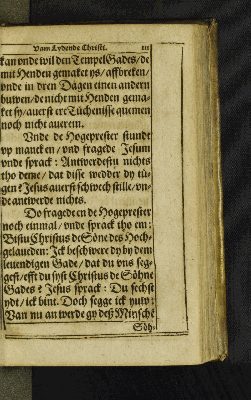 Vam Lydende Christi. III
kan vnde wil den Tempel Gades/ de
mit Henden gemaket ys/ affbreken/
vnde in dren Dagen einen andern
buwen/ de nicht mit Henden gema-
ket sy/ auerst ere Tüchenisse quemen
noch nicht auerein.
Vnde de Hogeprester stundt
vp manck en/ vnd fragede Jesum
vnde sprack: Antwerdestu nichts
tho deme/ dat disse wedder dy tü-
gen? Jesus auerst schweeh stille/ vn-
de antwerde nichts.
Do fragede en de Hogeprester
noch einmal/ vnde sprack tho em:
Bistu Christus de Söne des Hoch-
gelaueden: Ick beschwere dy by dem
leuendigen Gade/ dat du vns seg-
gest/ efft du syst Christus de Söhne
Gades? Jesus sprack: Du sechst
ydt/ ick bint. Doch segge ick yuw:
Van nu an werde gy deß Minsche
Söh-